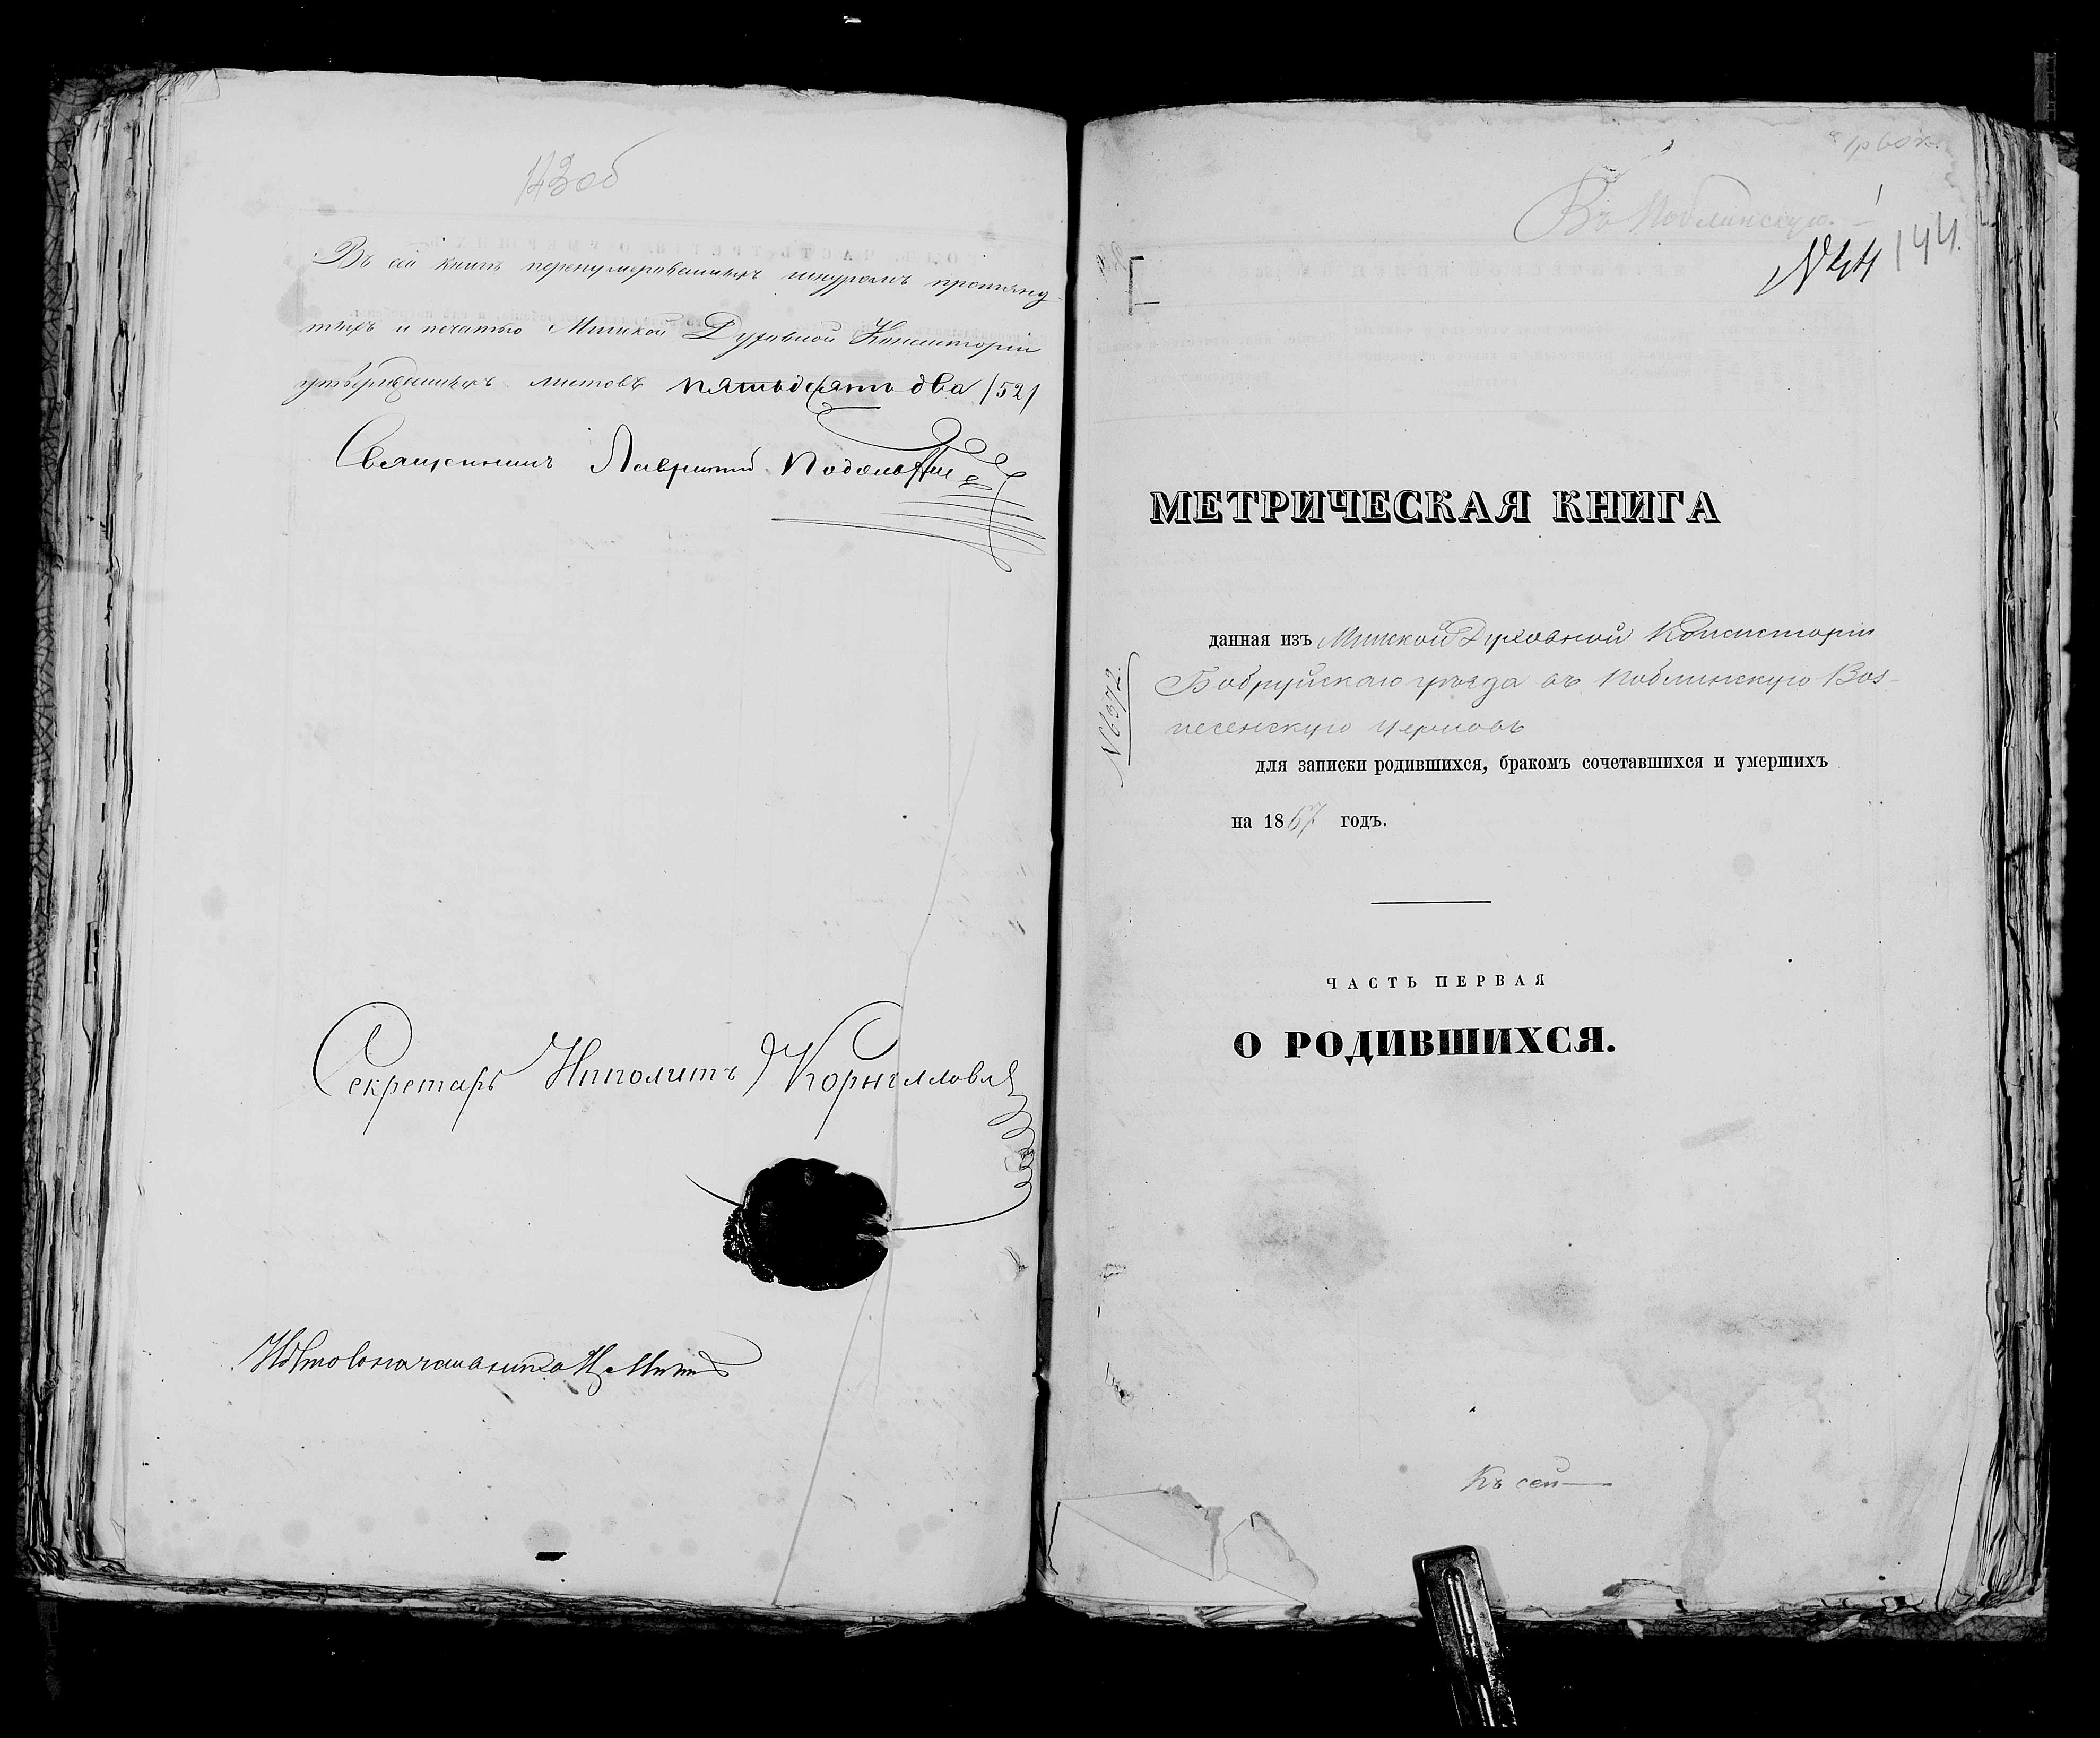 143об
Въ сей книгѣ перенумерованныхъ шнуромъ протяну-
тыхъ и печатью Минской Духовной Консисторіи
утвержденныхъ листовъ пятьдесятъ два /52/
Священникъ Лаврентій
Секретарь Ипполитъ Корнилловъ
Въ Поблинскую.
N 44 144.
МЕТРИЧЕСКАЯ КНИГА
данная изъ Минской Духовной Консисторіи
Бобруйскаго уѣзда въ Поблинскую Воз-
несенскую церковь
N 6372.
для записки родившихся, бракомъ сочетавшихся и умершихъ
на 1867 годъ.
ЧАСТЬ ПЕРВАЯ
О РОДИВШИХСЯ.
Къ сей